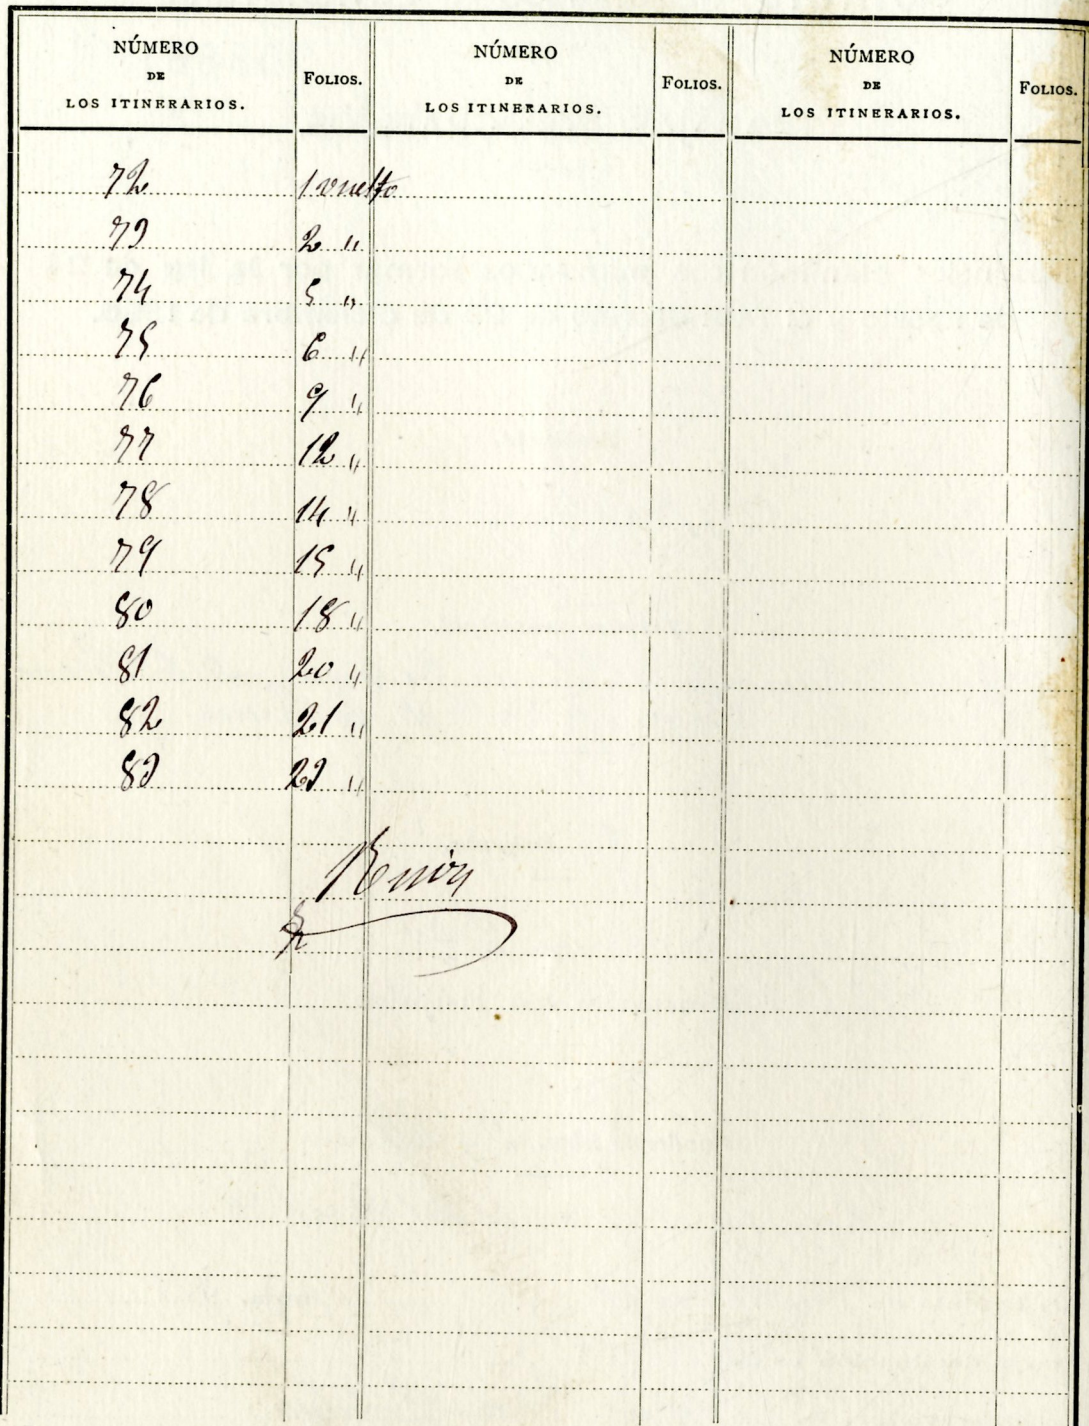 NÚMERO DE LOS ITINERARIOS. FOLIOS. NÚMERO DE LOS ITINERARIOS. FOLIOS. NÚMERO DE LOS ITINERARIOS. FOLIOS.
72 1 vuelto
73 2 "
74 5 "
75 6 "
76 9 "
77 12 "
78 14 "
79 15 "
80 18 "
81 20 "
82 21 "
83 23 "